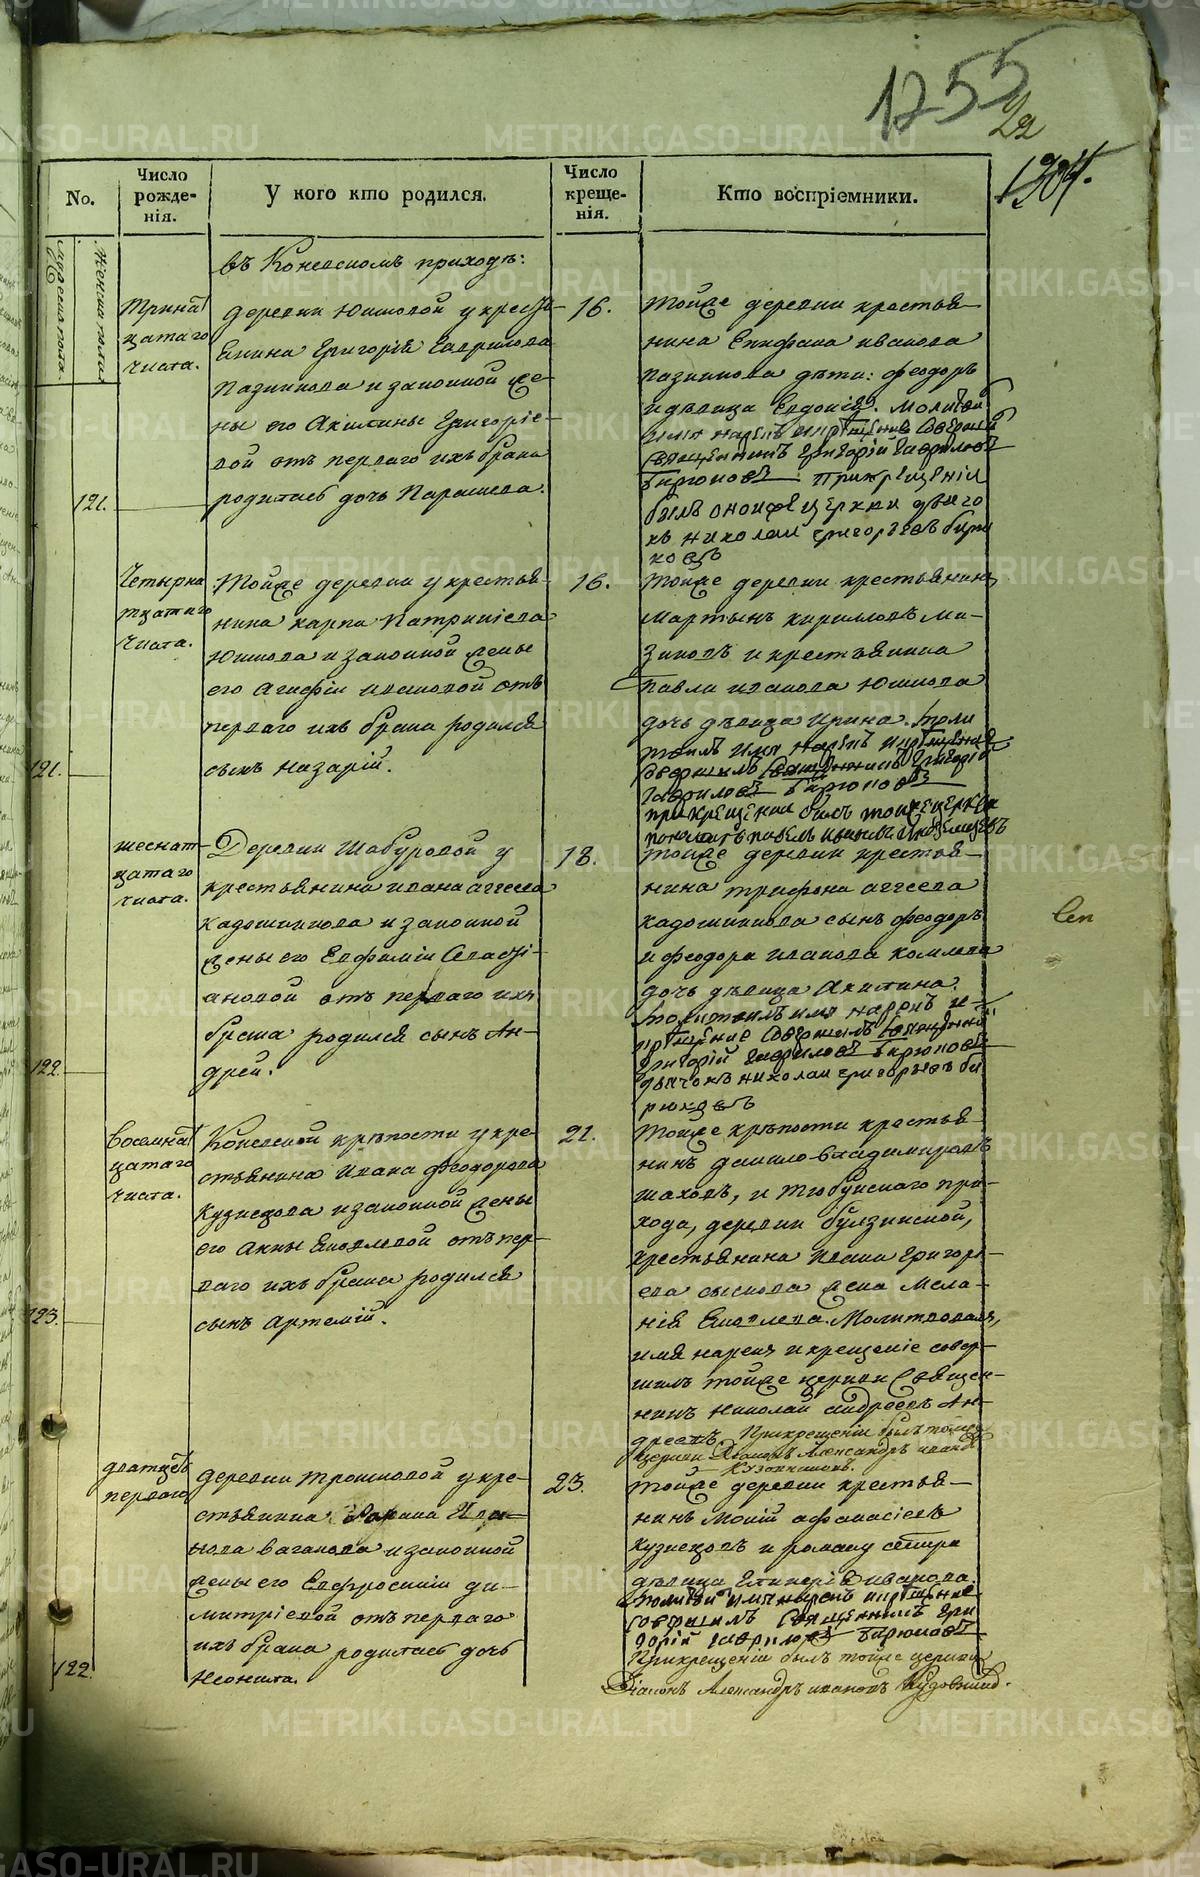 1255
22
1304.
No.
Число рожде-
нія.
У кого кто родился.
Число креще-
нія.
Кто воспріемники.
мужеска пола.
женска пола
въ Коневскомъ приходѣ:
Тринат
цатаго
числа.
деревни Юшковой у кресть-
янина Григорія Гаврилова
и законной же-
ны его Акилины Григоріе-
вой отъ перваго ихъ брака
родилась дочь Параскева.
121.
16.
тойже деревни крестья-
нина Епифана иванова
дѣти: феодоръ
и дѣвица Евдокія. Молитвой
имя нарекъ и крещеніе соверши
священникъ григорій гавриловъ
бирюковъ при крещеніи
былъ оной же церкви дьячо
къ николай григорьевъ бирю
ковъ
Четырна
тцатаго
числа.
Тойже деревни у крестья-
нина карпа Патрикіева
Юшкова и законной жены
его Агафіи ивановой отъ
перваго ихъ брака родился
сынъ назарій.
121.
16.
тойже деревни крестьянинъ
мартынъ кирилловъ ма-
зиновъ и крестьянина
павла иванова Юшкова
дочь дѣвица Ирина. моли
твилъ имя нарекъ и крещеніе
совершилъ священникъ григорій
гавриловъ бирюковъ
при крещеніи былъ тойже церкви
шеснат-
цатаго
числа.
Деревни Шабуровой у
крестьянина ивана аггеева
Кадошникова и законной
жены его Евфиміи Савасті-
ановой отъ перваго ихъ
брака родился сынъ Ан-
дрей.
122.
18.
тойже деревни крестья-
нина трифона аггеева
кадошникова сынъ феодоръ
и феодора иванова комлева
дочь дѣвица Акилина.
Молитвилъ имя нарекъ и
крещеніе совершилъ священникъ
григорій гавриловъ бирюковъ
дьячокъ николай григорьевъ би
рюковъ
Сеп
Восемнат
цатаго
числа.
Коневской крѣпости у кре-
стьянина Ивана феодорова
Кузнецова и законной жены
его Анны Яковлевой отъ пер-
ваго ихъ брака родился
сынъ Артемій.
123.
21.
Тойже крѣпости крестья-
нинъ данило владимировъ
шаховъ, и тюбукскаго при-
хода, деревни булзинской,
крестьянина Ивана Григорь-
ева сыскова жена Мела-
нія Яковлева. Молитвовалъ,
имя нарекъ и крещеніе совер-
шилъ тойже церкви Священ-
никъ Николай андреевъ Ан-
дреевъ. При крещеніи былъ тойже
церкви Діаконъ Александръ иванов
дватцеть
перваго
деревни трошковой у кре-
стьянина Романа Ива-
нова ваганова и законной
жены его Евфросиніи ди-
митріевой отъ перваго
ихъ брака родилась дочь
Неонила.
122.
23.
тойже деревни крестья-
нинъ мокій афанасіевъ
кузнецовъ и роману сестра
дѣвица Гликерія иванова.
молитвой имя нарекъ и крещеніе
совершилъ священникъ гри
горій гавриловъ бирюковъ
При крещеніи былъ тойже церкви
Діаконъ Александръ ивановъ